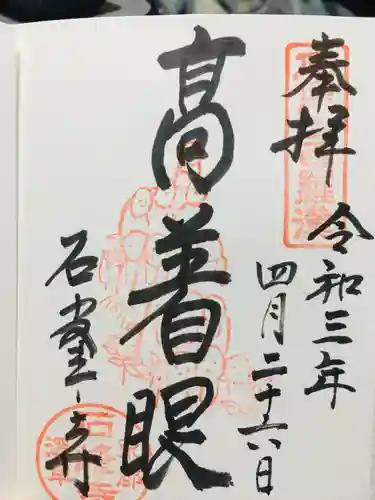 奉拝
令和三年
四月二十六日
高着眼
石堂寺